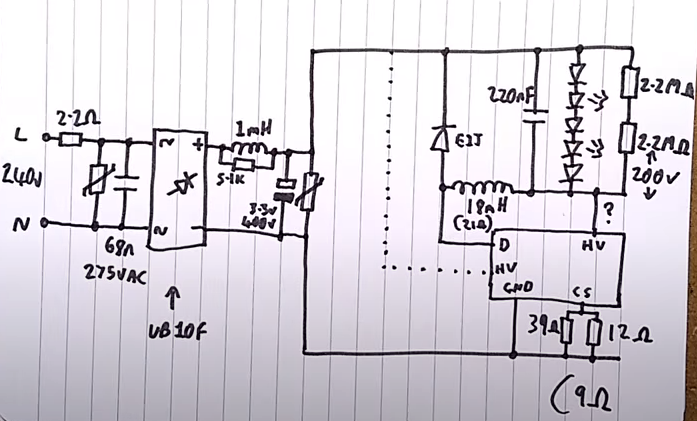 2·2Ω
L
240v
N
68n
275VAC
~
+
~
–
UB10F
1mH
5·1K
3·3u
400v
E1J
18mH
(21Ω)
220nF
2·2MΩ
2·2MΩ
200v
?
D
HV
HV
GND
CS
39Ω
12Ω
(9Ω